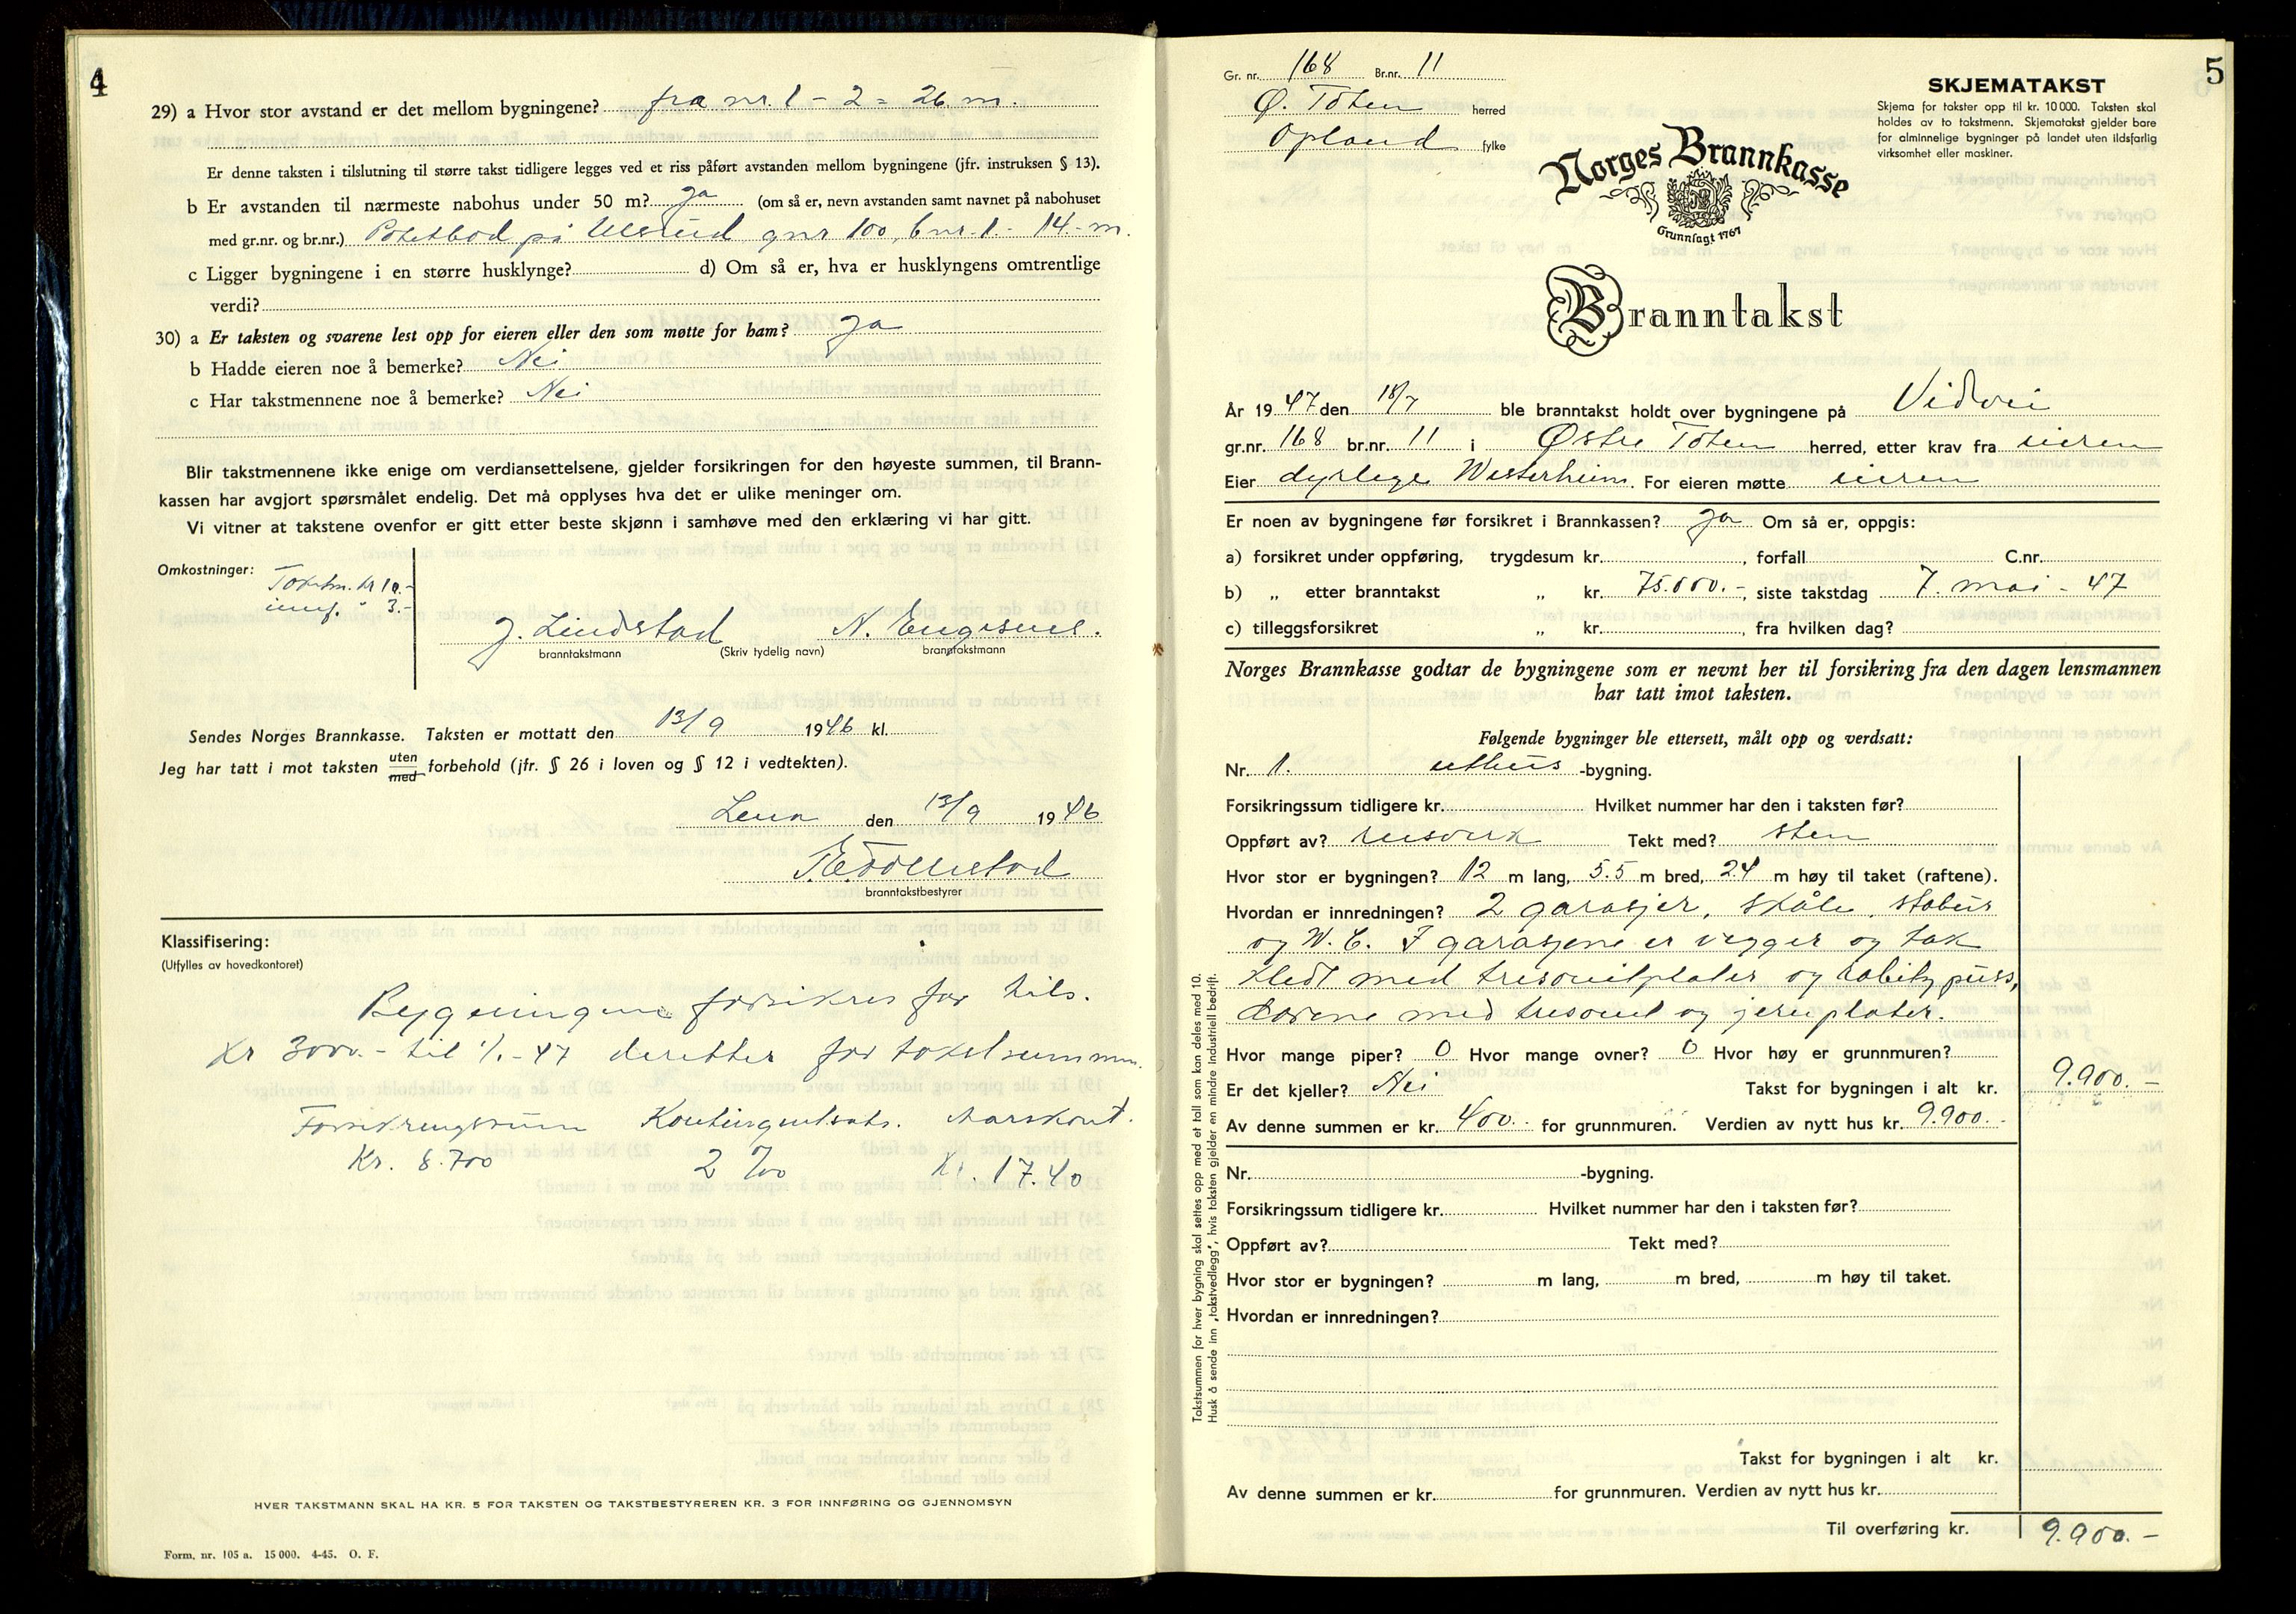 4
29) a Hvor stor avstand er det mellom bygningene? fra nr. 1 – 2 = 26 m.
Er denne taksten i tilslutning til større takst tidligere legges ved et riss påført avstanden mellom bygningene (jfr. instruksen § 13).
b Er avstanden til nærmeste nabohus under 50 m? ja (om så er, nevn avstanden samt navnet på nabohuset
med gr.nr. og br.nr.) Potetbod på Ulsrud gnr 100, bnr. 1. – 14.– m.
c Ligger bygningene i en større husklynge? d) Om så er, hva er husklyngens omtrentlige
verdi?
30) a Er taksten og svarene lest opp for eieren eller den som møtte for ham? Ja
b Hadde eieren noe å bemerke? Nei
c Har takstmennene noe å bemerke? Nei
Blir takstmennene ikke enige om verdiansettelsene, gjelder forsikringen for den høyeste summen, til Brann-
kassen har avgjort spørsmålet endelig. Det må opplyses hva det er ulike meninger om.
Vi vitner at takstene ovenfor er gitt etter beste skjønn i samhøve med den erklæring vi har gitt.
Omkostninger:
Takstm. kr 10.–
innf. " 3.–
J. Lindstad N.
branntakstmann (Skriv tydelig navn) branntakstmann
Sendes Norges Brannkasse. Taksten er mottatt den 13/9 1946 kl.
Jeg har tatt i mot taksten uten med forbehold (jfr. § 26 i loven og § 12 i vedtekten).
Lena den 13/9 1946
branntakstbestyrer
Klassifisering:
(Utfylles av hovedkontoret)
Bygningene forsikres for tils.
Kr 3000.– til 1/1.–47 deretter for takstsummen.
Forsikringssum Kontingentsats. Aarskont.
Kr. 8.700 2 ‰ Kr. 17.40
HVER TAKSTMANN SKAL HA KR. 5 FOR TAKSTEN OG TAKSTBESTYREREN KR. 3 FOR INNFØRING OG GJENNOMSYN
Form. nr. 105 a. 15 000. 4-45. O. F.
5
Gr. nr. 168 Br.nr. 11
Ø. Toten herred
Opland fylke
SKJEMATAKST
Skjema for takster opp til kr. 10 000. Taksten skal
holdes av to takstmenn. Skjematakst gjelder bare
for alminnelige bygninger på landet uten ildsfarlig
virksomhet eller maskiner.
Norges Brannkasse
Grunnlagt 1767
Branntakst
År 1947 den 18/7 ble branntakst holdt over bygningene på Vidvei
gr.nr. 168 br.nr. 11 i Østre Toten herred, etter krav fra eieren
Eier dyrlege Westerheim. For eieren møtte eieren
Er noen av bygningene før forsikret i Brannkassen? Ja Om så er, oppgis:
a) forsikret under oppføring, trygdesum kr. , forfall C.nr.
b) „ etter branntakst „ kr. 75.000.–, siste takstdag 7. mai – 47
c) tilleggsforsikret „ kr. , fra hvilken dag?
Norges Brannkasse godtar de bygningene som er nevnt her til forsikring fra den dagen lensmannen
har tatt imot taksten.
Følgende bygninger ble ettersett, målt opp og verdsatt:
Nr. 1. uthus -bygning.
Forsikringssum tidligere kr. Hvilket nummer har den i taksten før?
Oppført av? reisverk Tekt med? sten
Hvor stor er bygningen? 12 m lang, 5.5 m bred, 2.4 m høy til taket (raftene).
Hvordan er innredningen? 2 garasjer, skåle, stabur
og W.C. I garasjene er vegger og tak
kledt med tresonitplater og rabitz puss,
dørene med tresonit og jernplater.
Hvor mange piper? 0 Hvor mange ovner? 0 Hvor høy er grunnmuren?
Er det kjeller? Nei Takst for bygningen i alt kr. 9.900.–
Av denne summen er kr. 400.– for grunnmuren. Verdien av nytt hus kr. 9.900.–
Nr. -bygning.
Forsikringssum tidligere kr. Hvilket nummer har den i taksten før?
Oppført av? Tekt med?
Hvor stor er bygningen? m lang, m bred, m høy til taket.
Hvordan er innredningen?
Takst for bygningen i alt kr.
Av denne summen er kr. for grunnmuren. Verdien av nytt hus kr.
Til overføring kr. 9.900.–
Takstsummen for hver bygning skal settes opp med et tall som kan deles med 10.
Husk å sende inn „takstvedlegg“, hvis taksten gjelder en mindre industriell bedrift.